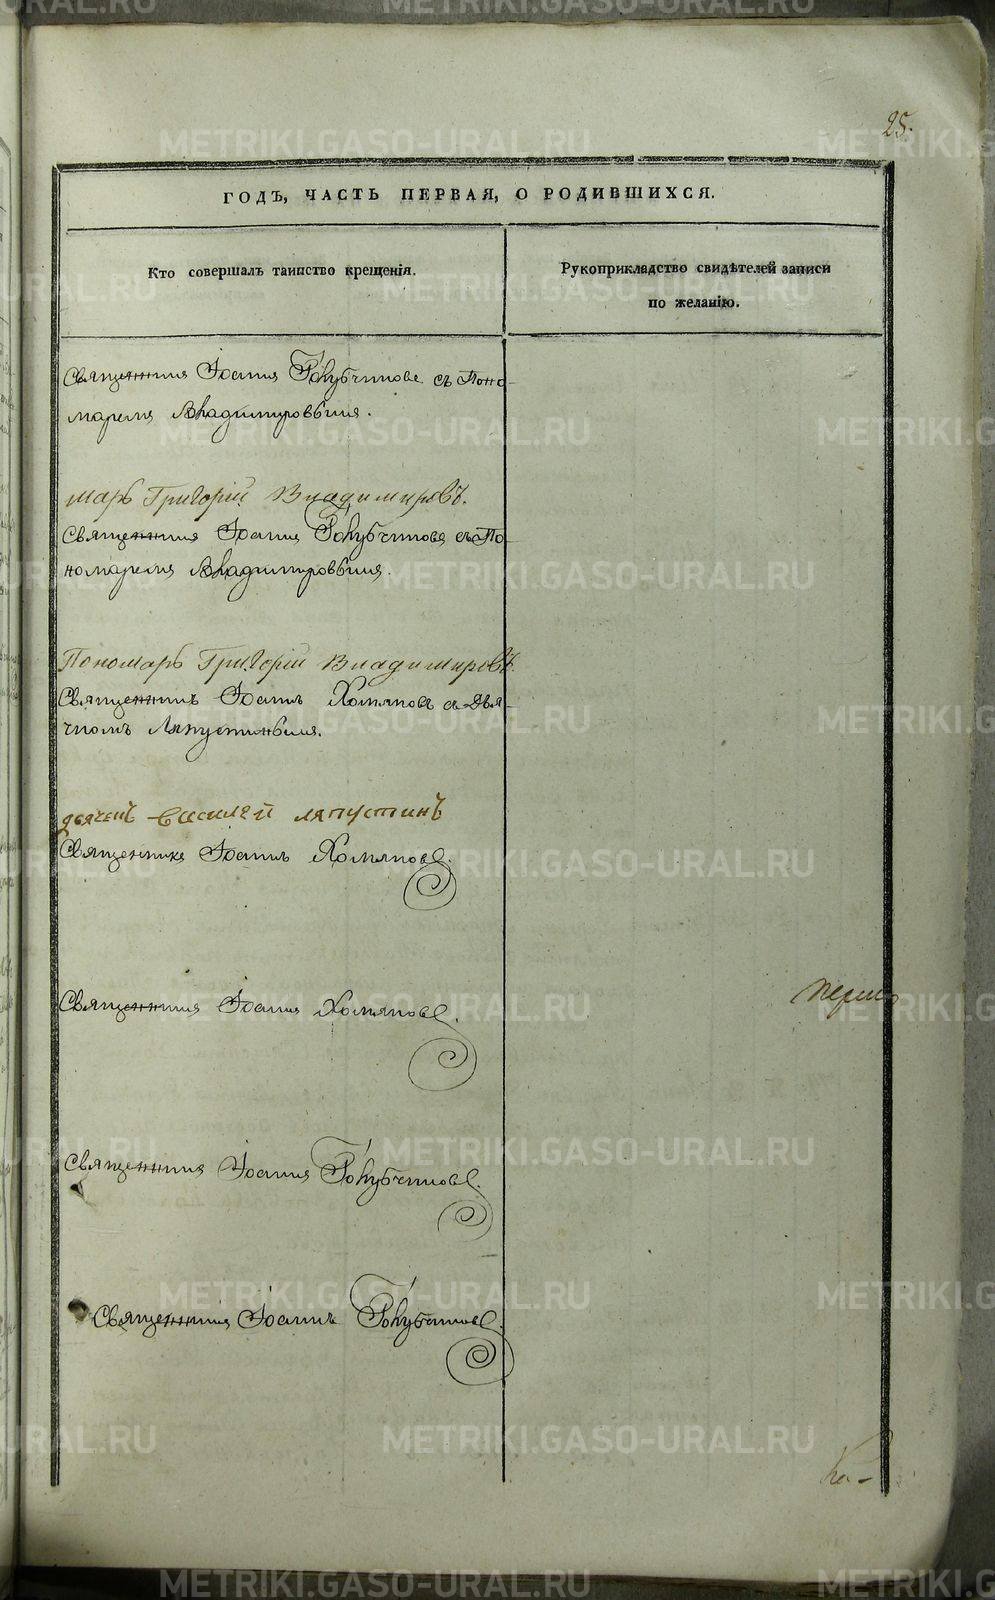 25.
ГОДЪ, ЧАСТЬ ПЕРВАЯ, О РОДИВШИХСЯ.
Кто совершалъ таинство крещенія.
Рукоприкладство свидѣтелей записи
по желанію.
Священникъ Іоаннъ Голубчиковъ съ Поно-
маремъ Владимировымъ.
марь Григорій Владимировъ.
Священникъ Іоаннъ Голубчиковъ съ По-
номаремъ Владимировымъ.
Пономарь Григорій Владимировъ.
Священникъ Іоаннъ Хомяковъ съ Дья-
чкомъ Ляпустинымъ.
дьячекъ Василей ляпустинъ
Священникъ Іоаннъ Хомяковъ.
Священникъ Іоаннъ Хомяковъ.
Священникъ Іоаннъ Голубчиковъ.
Священникъ Іоаннъ Голубчиковъ.
METRIKI.GASO-URAL.RU